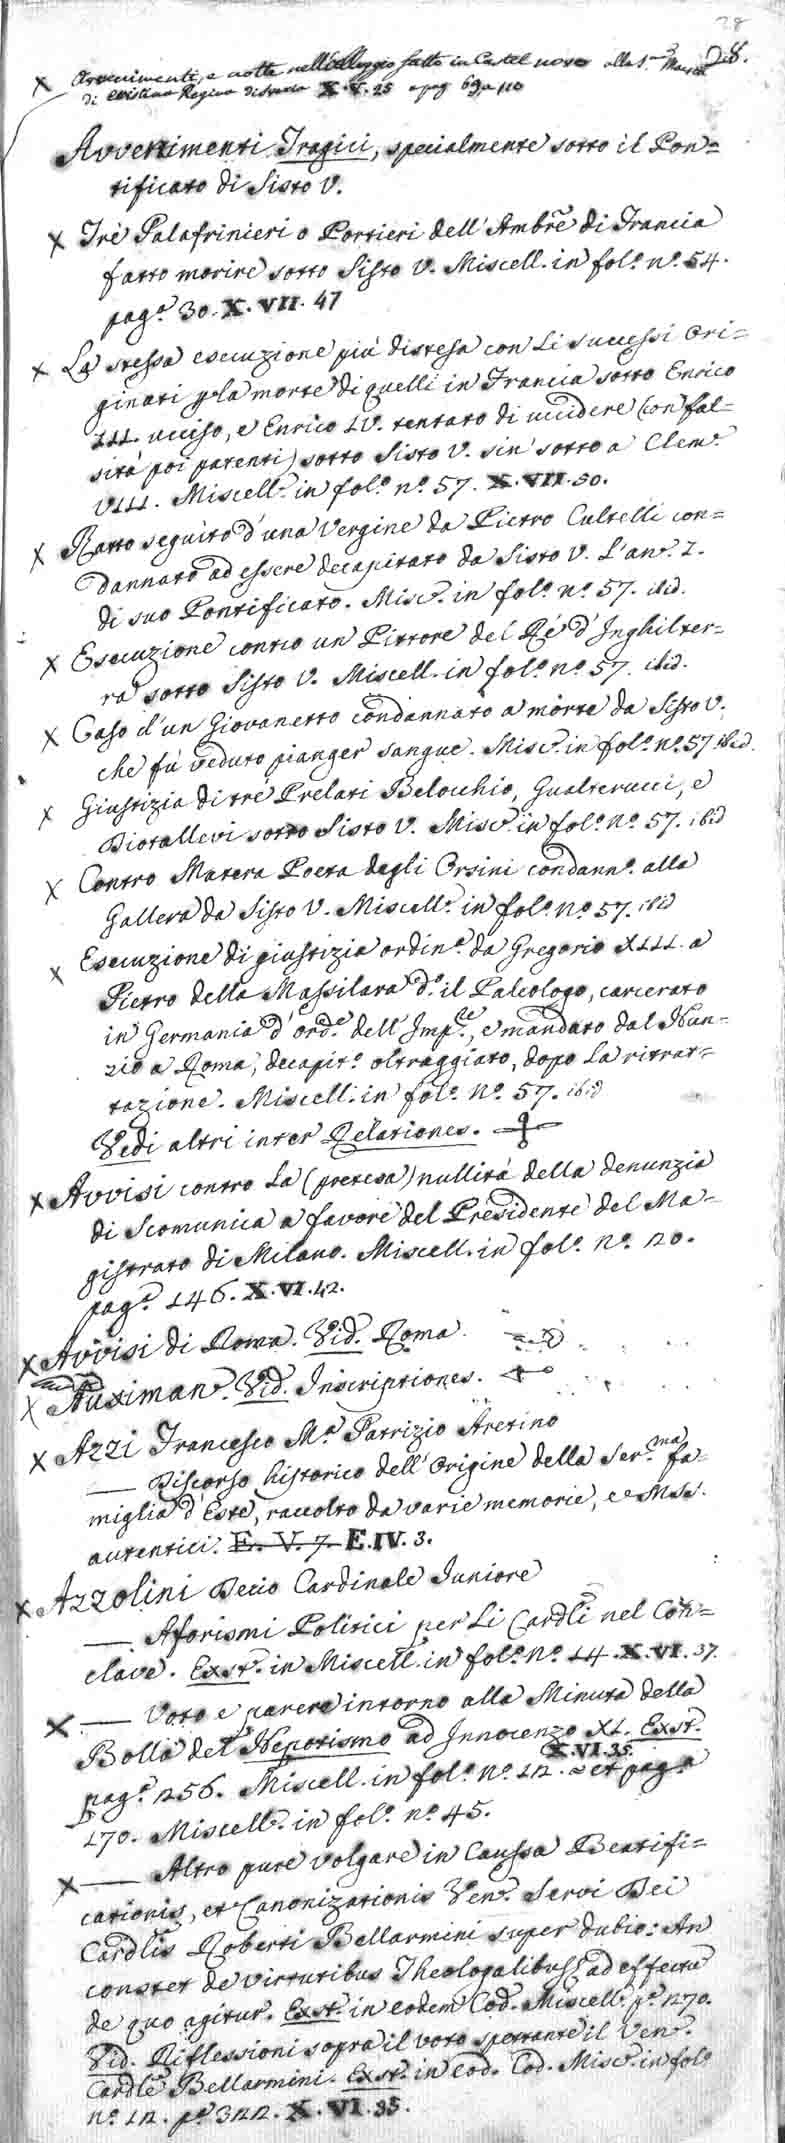 28
28.
Avvenimenti, e notte nell'alloggio fatto in Castel novo alla S. Maestà
di Cristina Regina di Svezia X.V.25 a pag 69 a 110
Avvenimenti Tragici, specialmente sotto il Pon=
tificato di Sisto V.
X Trè Palafrinieri o Portieri dell'Ambre di Francia
fatto morire sotto Sisto V. Miscell. in fol.o n.o 54.
pag.a 30. X.VII.47
X La stessa esecuzione più distesa con li successi ori=
ginati p la morte di quelli in Francia sotto Enrico
III. ucciso, e Enrico IV. tentato di uccidere (con fal=
sità poi parenti) sotto Sisto V. sin' sotto a Clem.e
VIII. Miscell. in fol.o n.o 57. X.VII.50.
X Ratto seguito d'una Vergine da Pietro Cultelli con=
dannato ad essere decapitato da Sisto V. L'an. I.
di suo Pontificato. Misc. in fol.o n.o 57. ibid.
X Esecuzione contro un Pittore del Rè d'Inghilter=
ra sotto Sisto V. Miscell. in fol.o n.o 57. ibid.
X Caso d'un Giovanetto condannato a morte da Sisto V.
che fù veduto pianger sangue. Misc. in fol.o n.o 57 ibid.
X Giustizia di trè Prelati Belocchio, Gualterucci, e
Diotallevi sotto Sisto V. Misc. in fol.o n.o 57. ibid
X Contro Matera Poeta degli Orsini condann.o alla
Gallera da Sisto V. Miscell. in fol.o n.o 57. ibid
X Esecuzione di giustizia ordin.a da Gregorio XIII. a
Pietro della Massilara d.o il Paleologo, carcerato
in Germania d'ord.e dell'Imp.re, e mandato dal Nun=
zio a Roma, decapit.o oltraggiato, dopo la ritrat=
tazione. Miscell. in fol.o n.o 57. ibid
Vedi altri inter Relationes.
X Avvisi contro la (pretesa) nullità della denunzia
di Scomunica a favore del Presidente del Ma=
gistrato di Milano. Miscell. in fol.o n.o 20.
pag.a 146. X.VI.42.
X Avvisi di Roma. Vid. Roma.
X Auximan. Vid. Inscriptiones.
X Azzi Francesco M.a Patrizio Aretino
— Discorso historico dell'Origine della Ser.ma fa=
miglia d'Este, raccolto da varie memorie, e MSS.
autentici. E.V.7. E.IV.3.
X Azzolini Decio Cardinale Juniore
— Aforismi Politici per li Cardli nel Con=
clave. Exst. in Miscell. in fol.o n.o 14. X.VI.37.
X — Voto e parere intorno alla Minuta della
Bolla del Nepotismo ad Innocenzo XI. Exst.
pag.a 256. Miscell. in fol.o n.o 12. X.VI.35. et pag.a
170. Miscell. in fol.o n.o 45.
X — Altro pure volgare in Caussa Beatifi=
cationis, et Canonizationis Ven. Servi Dei
Cardlis Roberti Bellarmini super dubio: An
constet de virtutibus Theologalibus ad effectu
de quo agitur. Exst. in eodem Cod. Miscell. p.a 270.
Vid. Riflessioni sopra il voto spettante il Ven.
Cardle Bellarmini. Exst. in eod. Cod. Misc. in fol.o
n.o 12. p.a 322. X.VI.35.